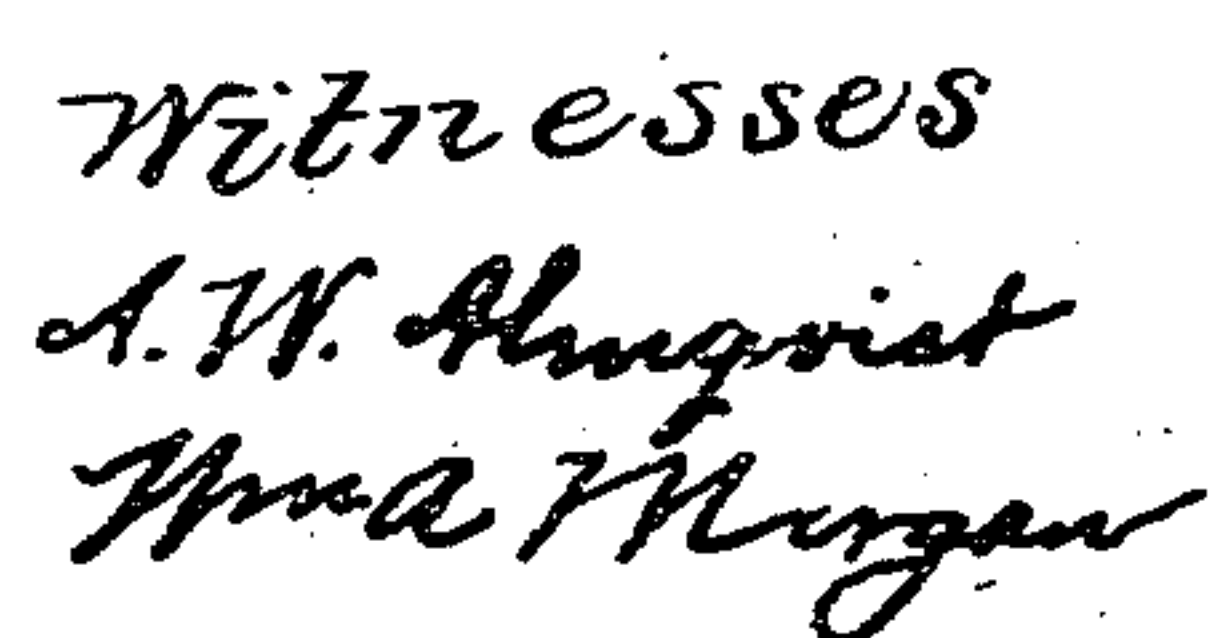 Witnesses
A. W. Almqvist
Wm A Morgan